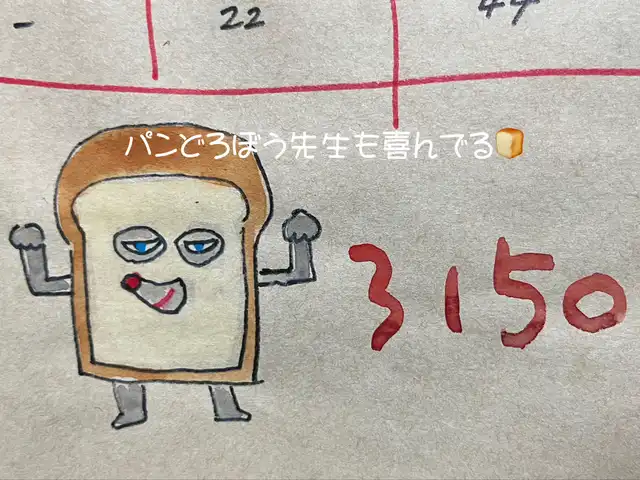 -
22
44
パンどろぼう先生も喜んでる🍞
3150